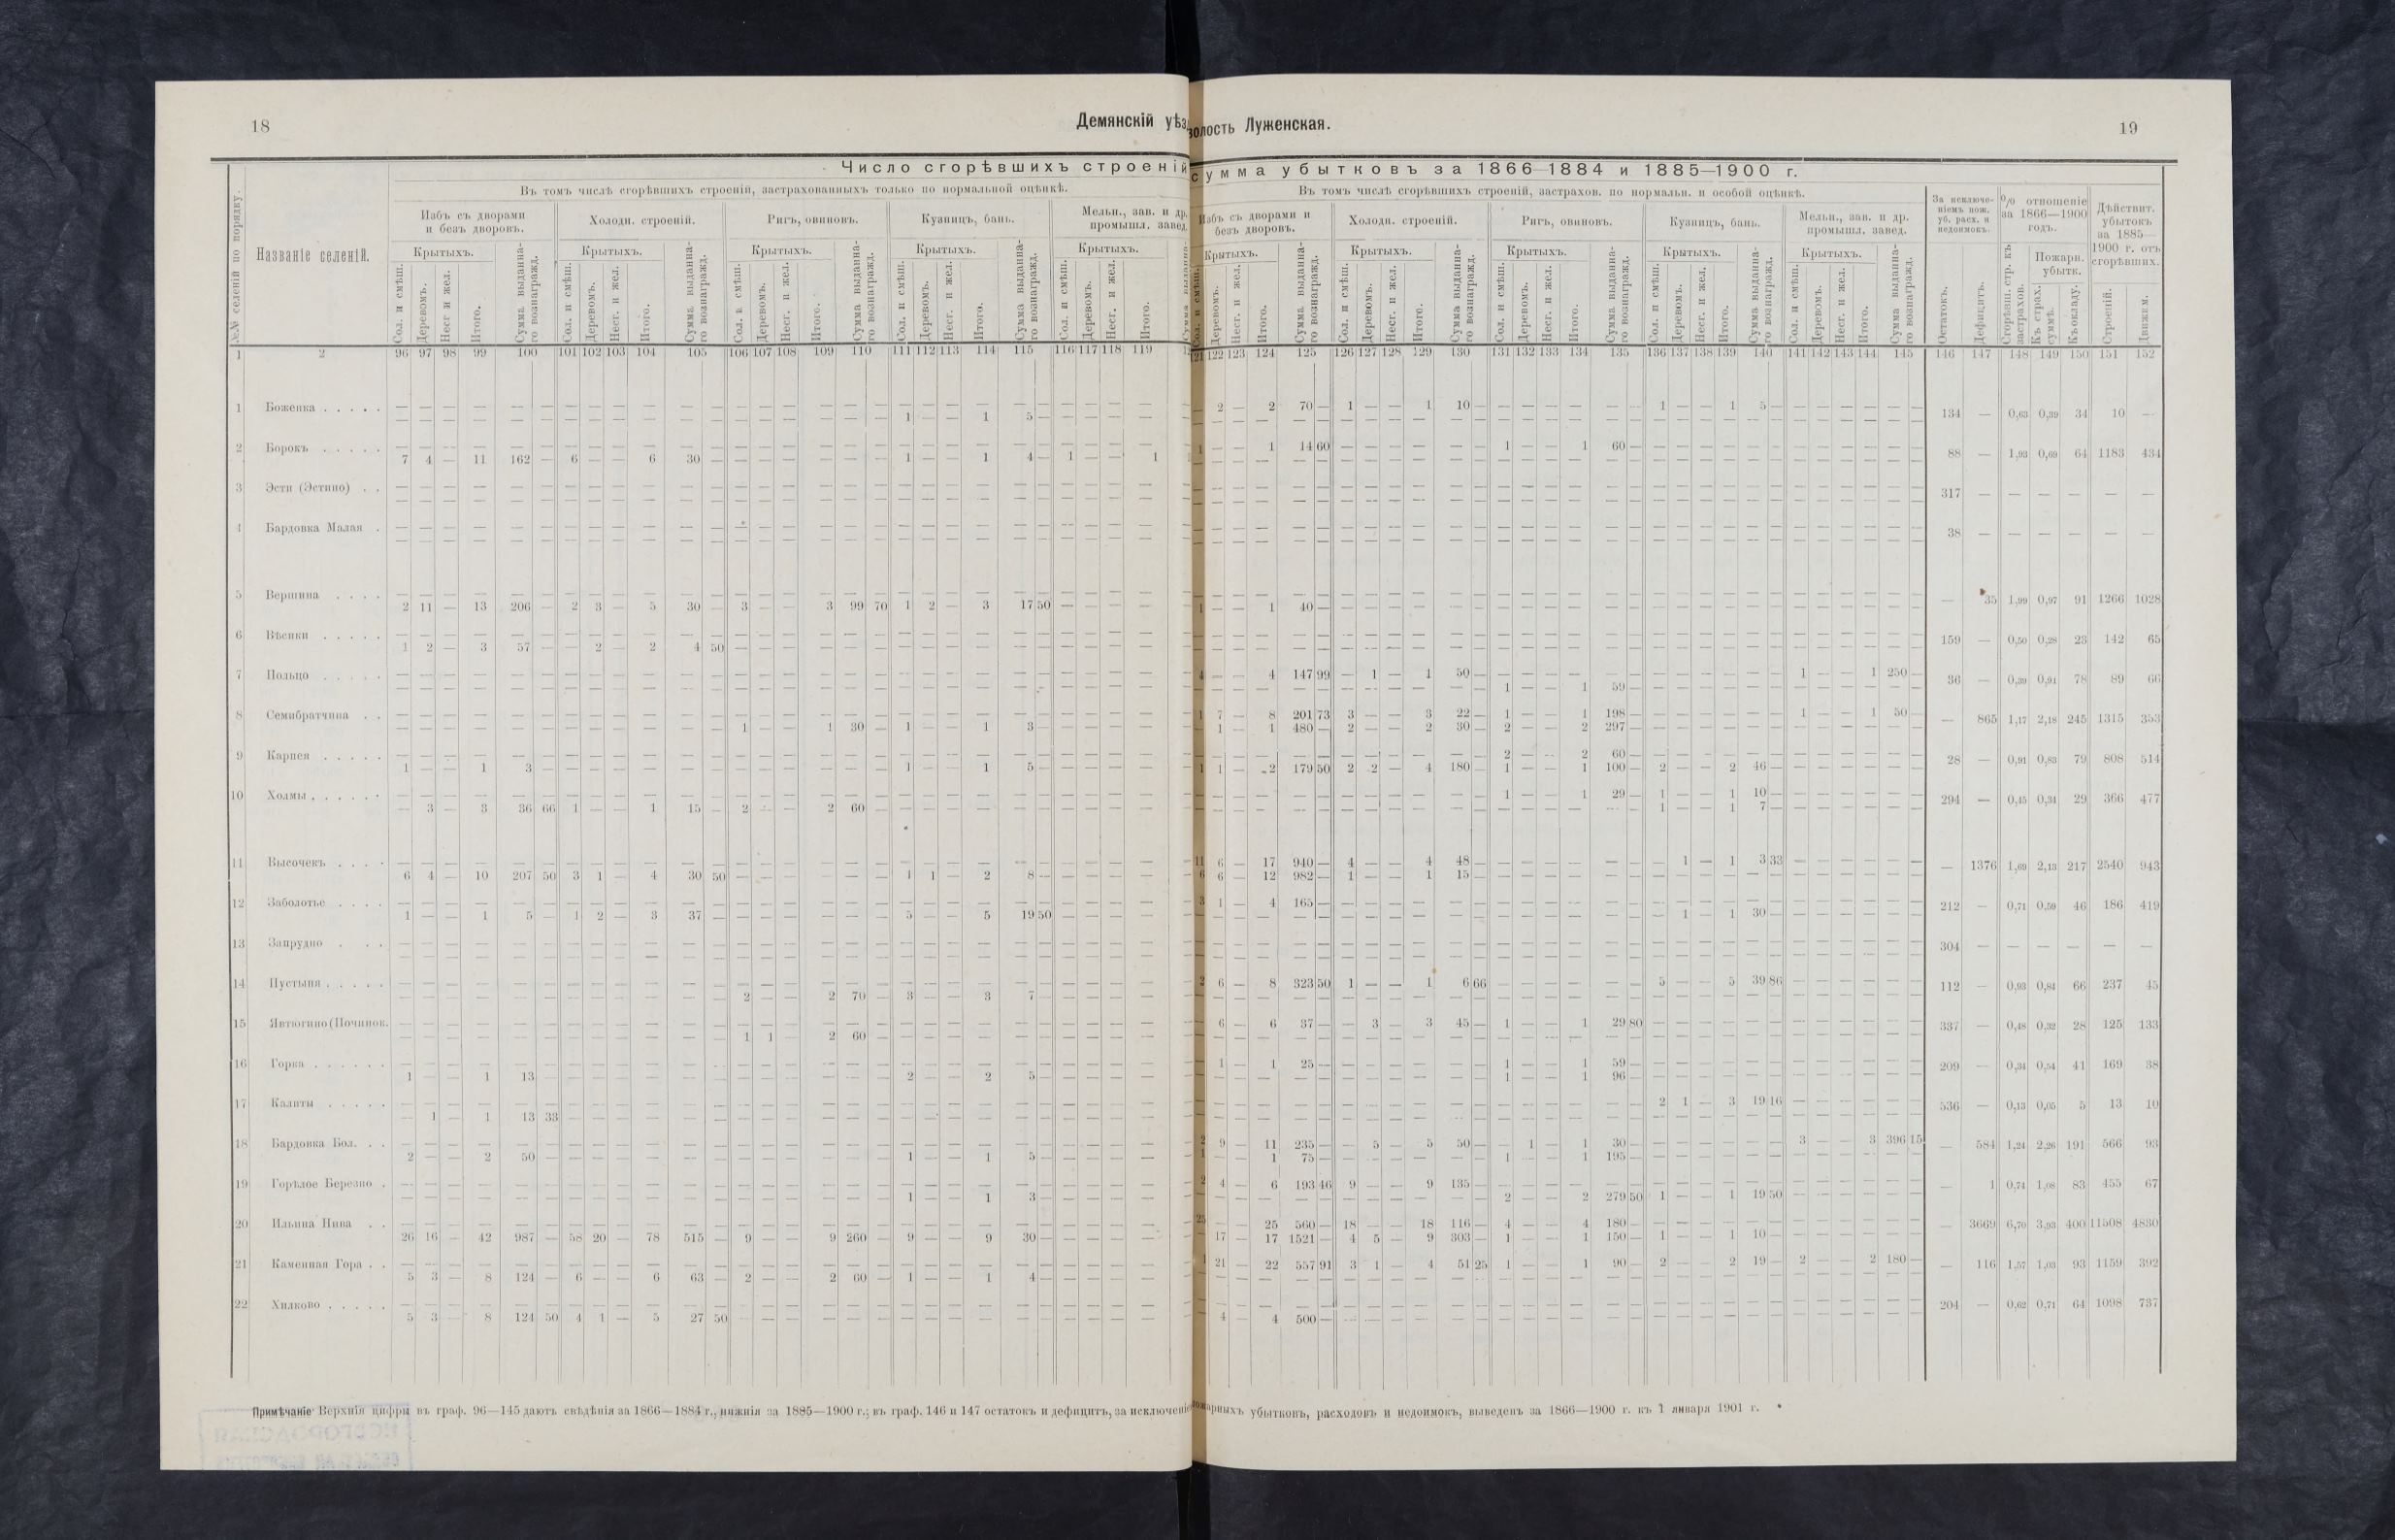 18
Демянскій уѣз
волость Луженская.
19
Число сгорѣвшихъ строеній
сумма убытковъ за 1866—1884 и 1885—1900 г.
№№ селеній по порядку.
Названіе селеній.
Въ томъ числѣ сгорѣвшихъ строеній, застрахованныхъ только по нормальной оцѣнкѣ.
Избъ съ дворами и безъ дворовъ.
Холодн. строеній.
Ригъ, овиновъ.
Кузницъ, бань.
Мельн., зав. и др. промышл. завед.
Крытыхъ. Крытыхъ. Крытыхъ. Крытыхъ. Крытыхъ.
Сол. и смѣш. Деревомъ. Несг. и жел. Итого. Сумма выданнаго вознагражд.
Въ томъ числѣ сгорѣвшихъ строеній, застрахов. по нормальн. и особой оцѣнкѣ.
Избъ съ дворами и безъ дворовъ.
Холодн. строеній.
Ригъ, овиновъ.
Кузницъ, бань.
Мельн., зав. и др. промышл. завед.
Крытыхъ. Крытыхъ. Крытыхъ. Крытыхъ. Крытыхъ.
За исключеніемъ пож. уб. расх. и недоимокъ.
Остатокъ. Дефицитъ.
% отношеніе за 1866—1900 годъ.
Сгорѣвш. стр. къ застрахов.
Пожарн. убытк.
Къ страх. суммѣ. Къ окладу.
Дѣйствит. убытокъ за 1885—1900 г. отъ сгорѣвшихъ.
Строеній. Движим.
1 2 96 97 98 99 100 101 102 103 104 105 106 107 108 109 110 111 112 113 114 115 116 117 118 119
121 122 123 124 125 126 127 128 129 130 131 132 133 134 135 136 137 138 139 140 141 142 143 144 145 146 147 148 149 150 151 152
1 Боженка . . . . . — — — — — — — — — — — —
1 — — 1 5 —
2 — 2 70 — 1 — — 1 10 — 1 — — 1 5 —
134 — 0,63 0,39 34 10 —
2 Борокъ . . . . .
7 4 — 11 162 — 6 — — 6 30 — 1 — — 1 4 — 1 — — 1
1 — — 1 14 60 1 — — 1 60 —
88 — 1,93 0,69 64 1183 434
3 Эсти (Эстино) . .
317 — — — — — —
4 Бардовка Малая .
38 — — — — — —
5 Вершина . . . .
2 11 — 13 206 — 2 3 — 5 30 — 3 — — 3 99 70 1 2 — 3 17 50
1 — — 1 40 —
— 35 1,99 0,97 91 1266 1028
6 Вѣсики . . . . .
1 2 — 3 57 — — 2 — 2 4 50
159 — 0,50 0,28 23 142 65
7 Польцо . . . . .
4 — — 4 147 99 — 1 — 1 50 — 1 — — 1 250 —
1 — — 1 59 —
36 — 0,39 0,91 78 89 66
8 Семибратчина . .
1 — — 1 30 — 1 — — 1 3 —
1 7 — 8 201 73 3 — — 3 22 — 1 — — 1 198 — 1 — — 1 50 —
— 1 — 1 480 — 2 — — 2 30 — 2 — — 2 297 —
— 865 1,17 2,18 245 1315 353
9 Карпея . . . . .
1 — — 1 3 — 1 — — 1 5 —
2 — — 2 60 —
1 1 — 2 179 50 2 2 — 4 180 — 1 — — 1 100 — 2 — — 2 46 —
28 — 0,91 0,83 79 808 514
10 Холмы . . . . . .
— 3 — 3 36 66 1 — — 1 15 — 2 — — 2 60 —
1 — — 1 29 — 1 — — 1 10 —
1 — — 1 7 —
294 — 0,45 0,34 29 366 477
11 Высочекъ . . . .
6 4 — 10 207 50 3 1 — 4 30 50 1 1 — 2 8 —
11 6 — 17 940 — 4 — — 4 48 — — 1 — 1 3 33
6 6 — 12 982 — 1 — — 1 15 —
— 1376 1,69 2,13 217 2540 943
12 Заболотье . . . .
1 — — 1 5 — 1 2 — 3 37 — 5 — — 5 19 50
3 1 — 4 165 —
— 1 — 1 30 —
212 — 0,71 0,59 46 186 419
13 Запрудно . . .
304 — — — — — —
14 Пустыня . . . . .
2 — — 2 70 — 3 — — 3 7 —
2 6 — 8 323 50 1 — — 1 6 66 5 — — 5 39 86
112 — 0,93 0,84 66 237 45
15 Явтюгино (Починок.
1 1 — 2 60 —
6 — 6 37 — — 3 — 3 45 — 1 — — 1 29 80
337 — 0,48 0,32 28 125 133
16 Горка . . . . . .
1 — — 1 13 — 2 — — 2 5 —
1 — 1 25 — 1 — — 1 59 —
1 — — 1 96 —
209 — 0,34 0,54 41 169 38
17 Калиты . . . . .
— 1 — 1 13 33
2 1 — 3 19 16
536 — 0,13 0,05 5 13 10
18 Бардовка Бол. . .
2 — — 2 50 — 1 — — 1 5 —
2 9 — 11 235 — — 5 — 5 50 — — 1 — 1 30 — 3 — — 3 396 15
1 — — 1 75 — 1 — — 1 195 —
— 584 1,24 2,26 191 566 93
19 Горѣлое Березно .
1 — — 1 3 —
2 4 — 6 193 46 9 — — 9 135 —
2 — — 2 279 50 1 — — 1 19 50
— 1 0,74 1,08 83 455 67
20 Ильина Нива . .
26 16 — 42 987 — 58 20 — 78 515 — 9 — — 9 260 — 9 — — 9 30 —
25 — — 25 560 — 18 — — 18 116 — 4 — — 4 180 —
— 17 — 17 1521 — 4 5 — 9 303 — 1 — — 1 150 — 1 — — 1 10 —
— 3669 6,70 3,93 400 11508 4830
21 Каменная Гора . .
5 3 — 8 124 — 6 — — 6 63 — 2 — — 2 60 — 1 — — 1 4 —
1 21 — 22 557 91 3 1 — 4 51 25 1 — — 1 90 — 2 — — 2 19 — 2 — — 2 180 —
— 116 1,57 1,03 93 1159 392
22 Хилково . . . . .
5 3 — 8 124 50 4 1 — 5 27 50
4 — 4 500 —
204 — 0,62 0,71 64 1098 737
Примѣчаніе Верхнія цифры въ граф. 96—145 даютъ свѣдѣнія за 1866—1884 г., нижнія за 1885—1900 г.; въ граф. 146 и 147 остатокъ и дефицитъ, за исключеніе
пожарныхъ убытковъ, расходовъ и недоимокъ, выведенъ за 1866—1900 г. къ 1 января 1901 г.